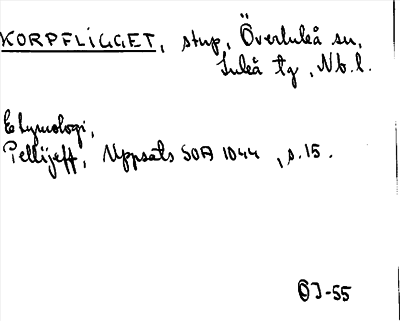 KORPFLIGGET, stup, Överluleå sn,
Luleå tg, Nb. l.
Etymologi,
Pellijeff, Uppsats SOA 1044, s. 15.
ÖJ-55